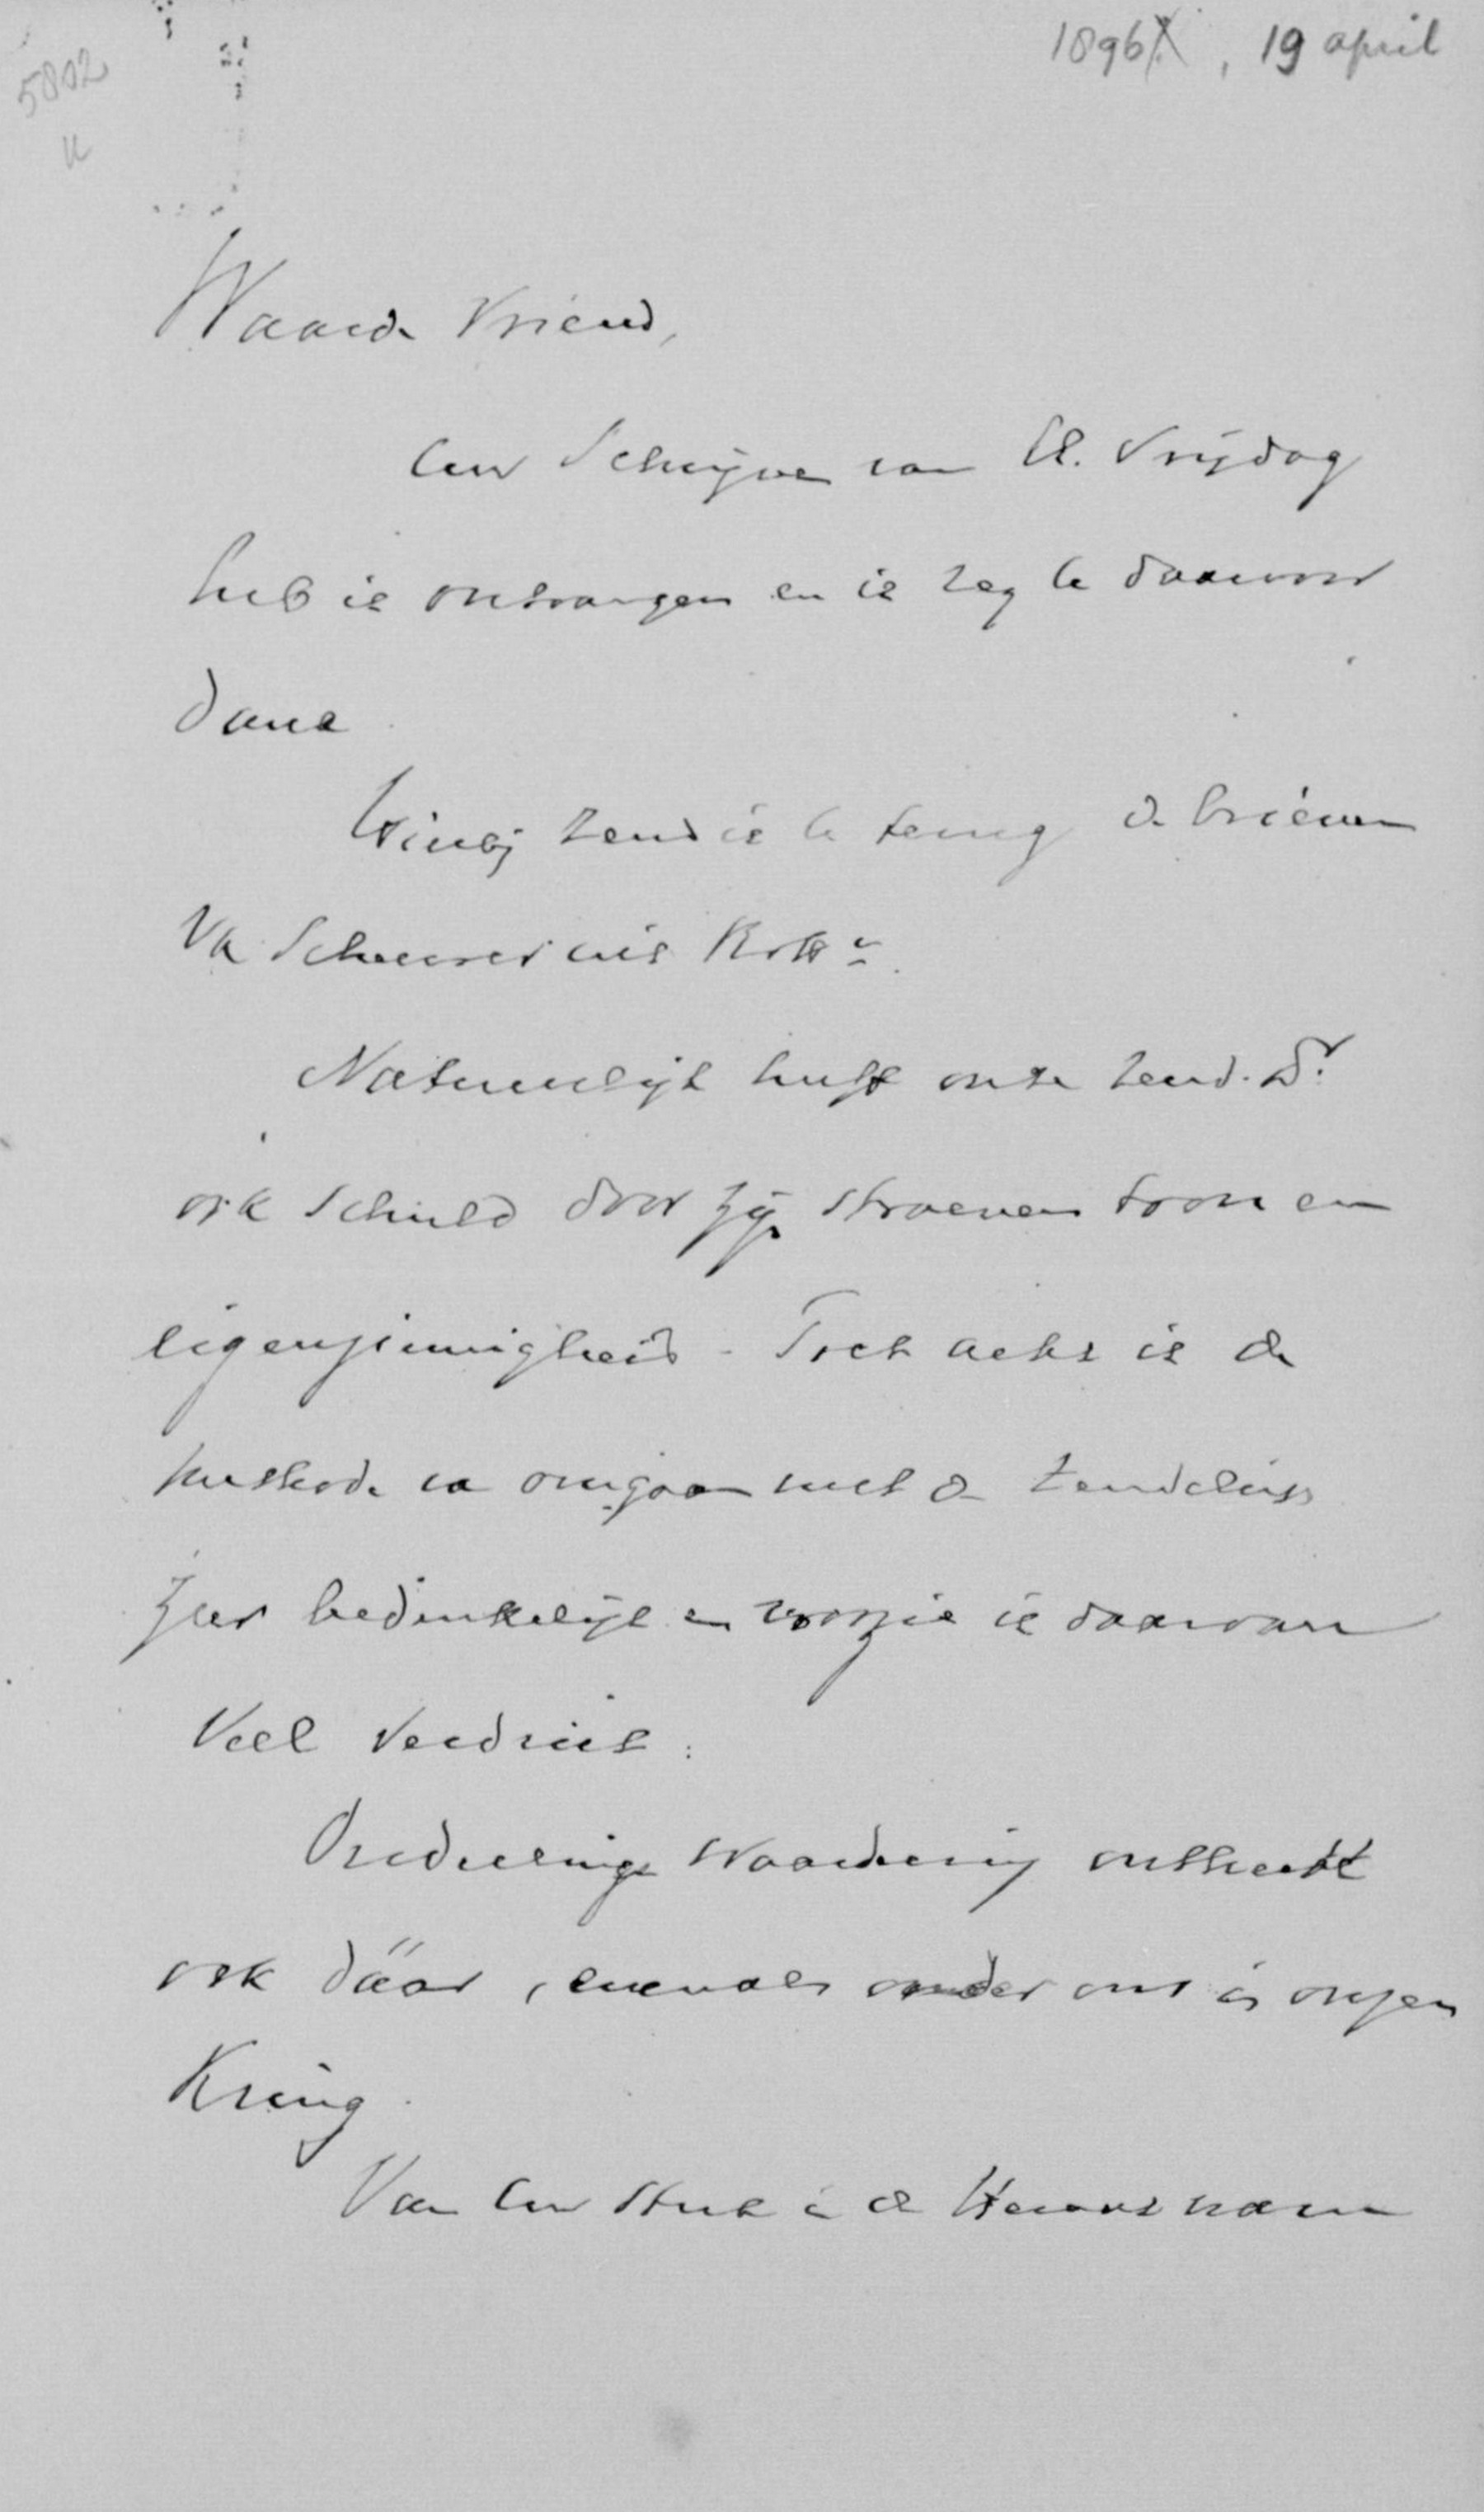 1896, 19 april
5802
Waarde Vriend,
Uw Schrijven van ll. Vrijdag
heb ik ontvangen en ik zeg U daarvoor
dank
Hierbij zend ik U terug de brieven
van Scheurer uit
Natuurlijk heeft onze Zend. Dr.
ook schuld door zijn stroeven toon en
eigenzinnigheid. Toch acht ik de
methode van omgaan met de Zendeling
zeer bedenkelijk en voorzie ik daarvan
Veel Verdriet.
Onderlinge Waardering ontbreekt
ook dáár, evenals onder ons in onzen
Kring.
Van Uw stuk in de Heraut nam